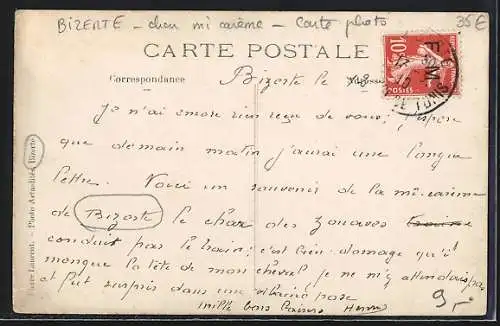 BIZERTE - char mi carême - Carte photo 35€
CARTE POSTALE
Correspondance
Bizerte le 8
10c
POSTES
Je n'ai encore rien reçu de vous; j'espère
que demain matin j'aurai une longue
lettre. Voici un souvenir de la mi-carême
de Bizerte le char des zouaves
conduit par le train; c'est bien domage qu'il
manque la tête de mon cheval je ne m'y attendais pas
et fut surpris dans une vilaine pose
mille bons baisers Henri
9,-
Pierre Laurent. - Photo Actualités Bizerte